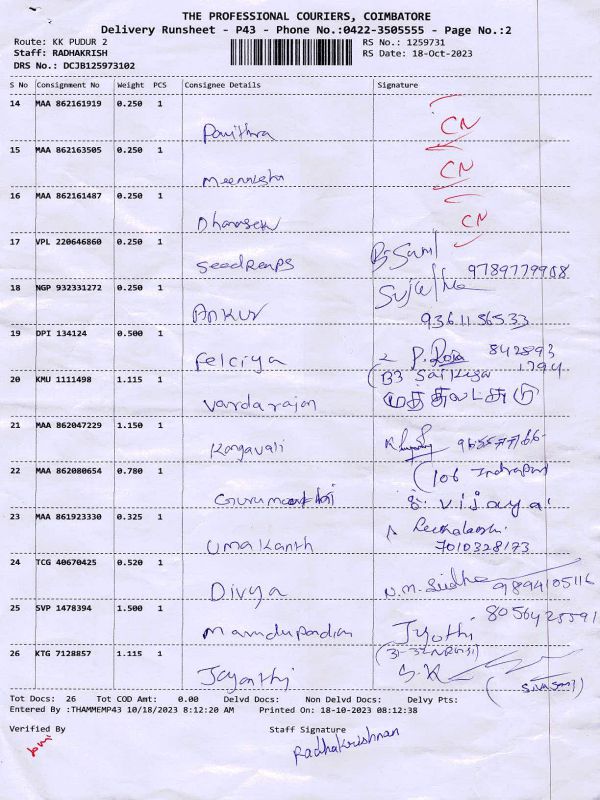 THE PROFESSIONAL COURIERS, COIMBATORE
Delivery Runsheet - P43 - Phone No.:0422-3505555 - Page No.:2
Route: KK PUDUR 2 RS No.: 1259731
Staff: RADHAKRISH RS Date: 18-Oct-2023
DRS No.: DCJB125973102
S No Consignment No Weight PCS Consignee Details Signature
14 MAA 862161919 0.250 1 Pavithra CN
15 MAA 862163505 0.250 1 Meenakshi CN
16 MAA 862161487 0.250 1 Dhanasek CN
17 VPL 220646860 0.250 1 Seedreaps 9789779908
18 NGP 932331272 0.250 1 Ankur Sujatha
93611 56533
19 DPI 134124 0.500 1 Felciya P. Roja 842893
1794
20 KMU 1111498 1.115 1 Vardarajan
21 MAA 862047229 1.150 1 Kangavali
22 MAA 862080654 0.780 1 Gurumoorthi (106
S. vijaya
23 MAA 861923330 0.325 1 Umakanth
7010328173
24 TCG 40670425 0.520 1 Divya N.M. Sudha 9894105116
25 SVP 1478394 1.500 1 8056425591
Jyothi
26 KTG 7128857 1.115 1 Jayanthi S.K
Tot Docs: 26 Tot COD Amt: 0.00 Delvd Docs: Non Delvd Docs: Delvy Pts:
Entered By :THAMMEMP43 10/18/2023 8:12:20 AM Printed On: 18-10-2023 08:12:38
Verified By Staff Signature
Radhakrishnan